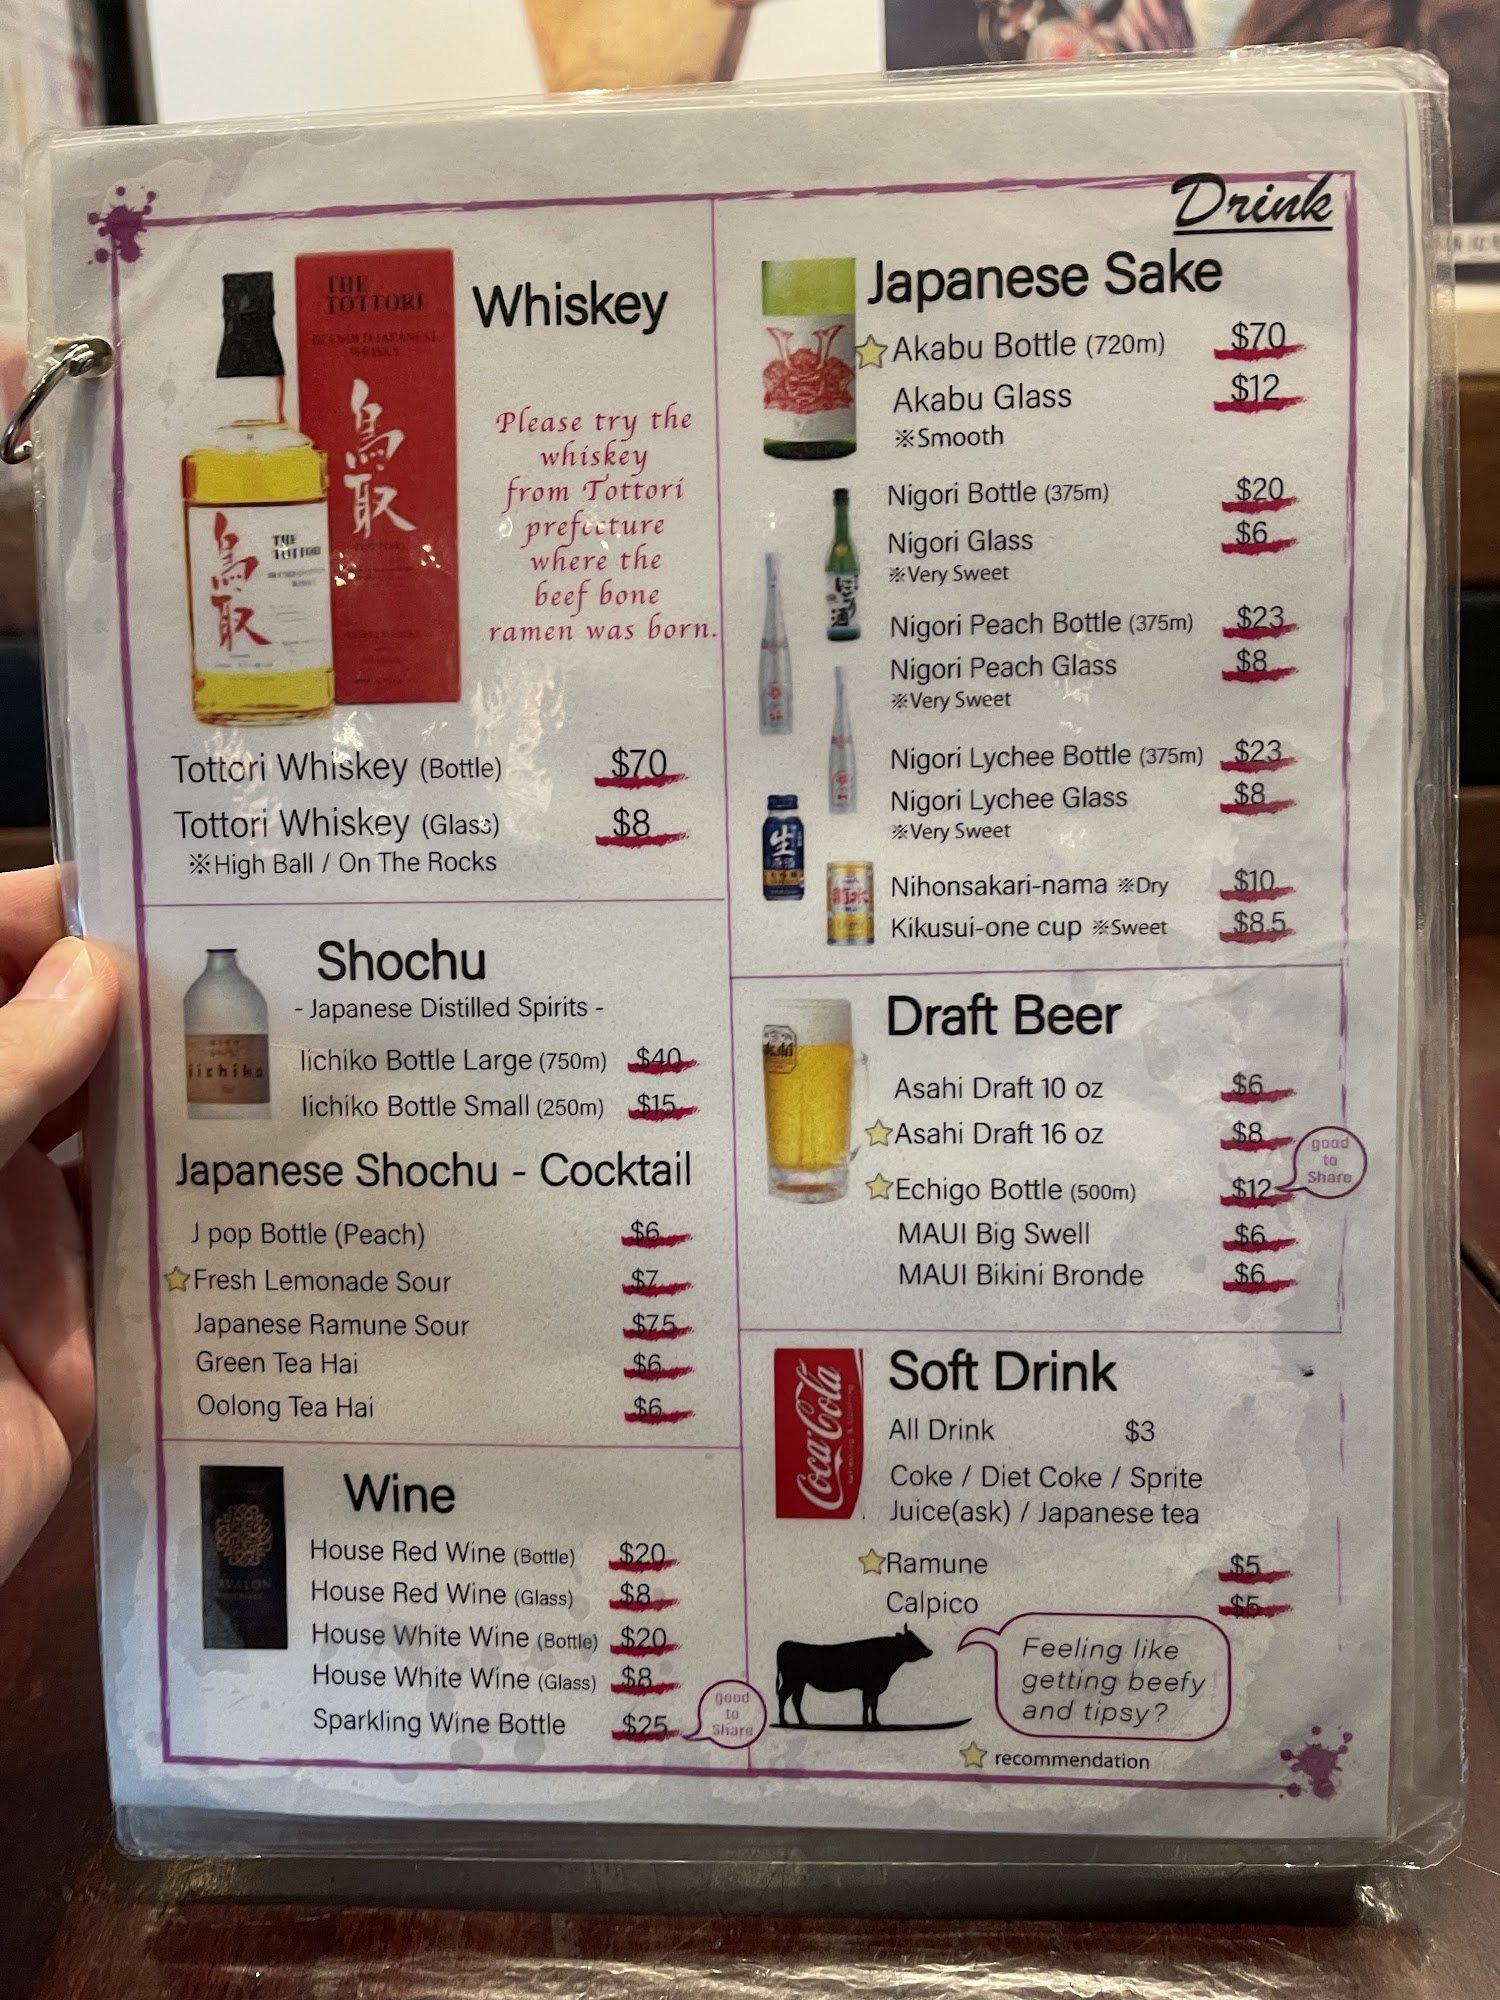 Drink
THE
TOTTORI
BLENDED JAPANESE
WHISKY
鳥取
鳥取
THE
TOTTORI
Whiskey
Please try the
whiskey
from Tottori
prefecture
where the
beef bone
ramen was born.
Tottori Whiskey (Bottle) $70
Tottori Whiskey (Glass) $8
※High Ball / On The Rocks
Shochu
- Japanese Distilled Spirits -
iichiko
Iichiko Bottle Large (750m) $40
Iichiko Bottle Small (250m) $15
Japanese Shochu - Cocktail
J pop Bottle (Peach) $6
Fresh Lemonade Sour $7
Japanese Ramune Sour $7.5
Green Tea Hai $6
Oolong Tea Hai $6
Wine
AVALON
House Red Wine (Bottle) $20
House Red Wine (Glass) $8
House White Wine (Bottle) $20
House White Wine (Glass) $8
Sparkling Wine Bottle $25
good
to
Share
Japanese Sake
Akabu Bottle (720m) $70
Akabu Glass $12
※Smooth
Nigori Bottle (375m) $20
Nigori Glass $6
※Very Sweet
Nigori Peach Bottle (375m) $23
Nigori Peach Glass $8
※Very Sweet
Nigori Lychee Bottle (375m) $23
Nigori Lychee Glass $8
※Very Sweet
生
Nihonsakari-nama ※Dry $10
Kikusui-one cup ※Sweet $8.5
Draft Beer
Asahi
Asahi Draft 10 oz $6
Asahi Draft 16 oz $8
Echigo Bottle (500m) $12
good
to
Share
MAUI Big Swell $6
MAUI Bikini Bronde $6
Soft Drink
Coca-Cola
All Drink $3
Coke / Diet Coke / Sprite
Juice(ask) / Japanese tea
Ramune $5
Calpico $5
Feeling like
getting beefy
and tipsy?
recommendation